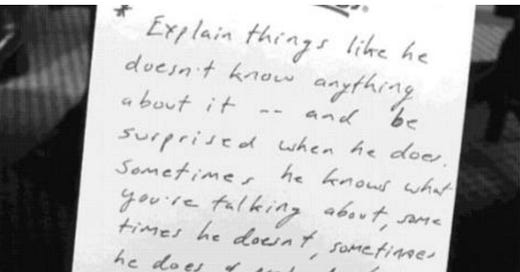 * Explain things like he
doesn't know anything
about it -- and be
surprised when he does.
Sometimes he knows what
you're talking about, some
times he doesn't, sometimes
he does &